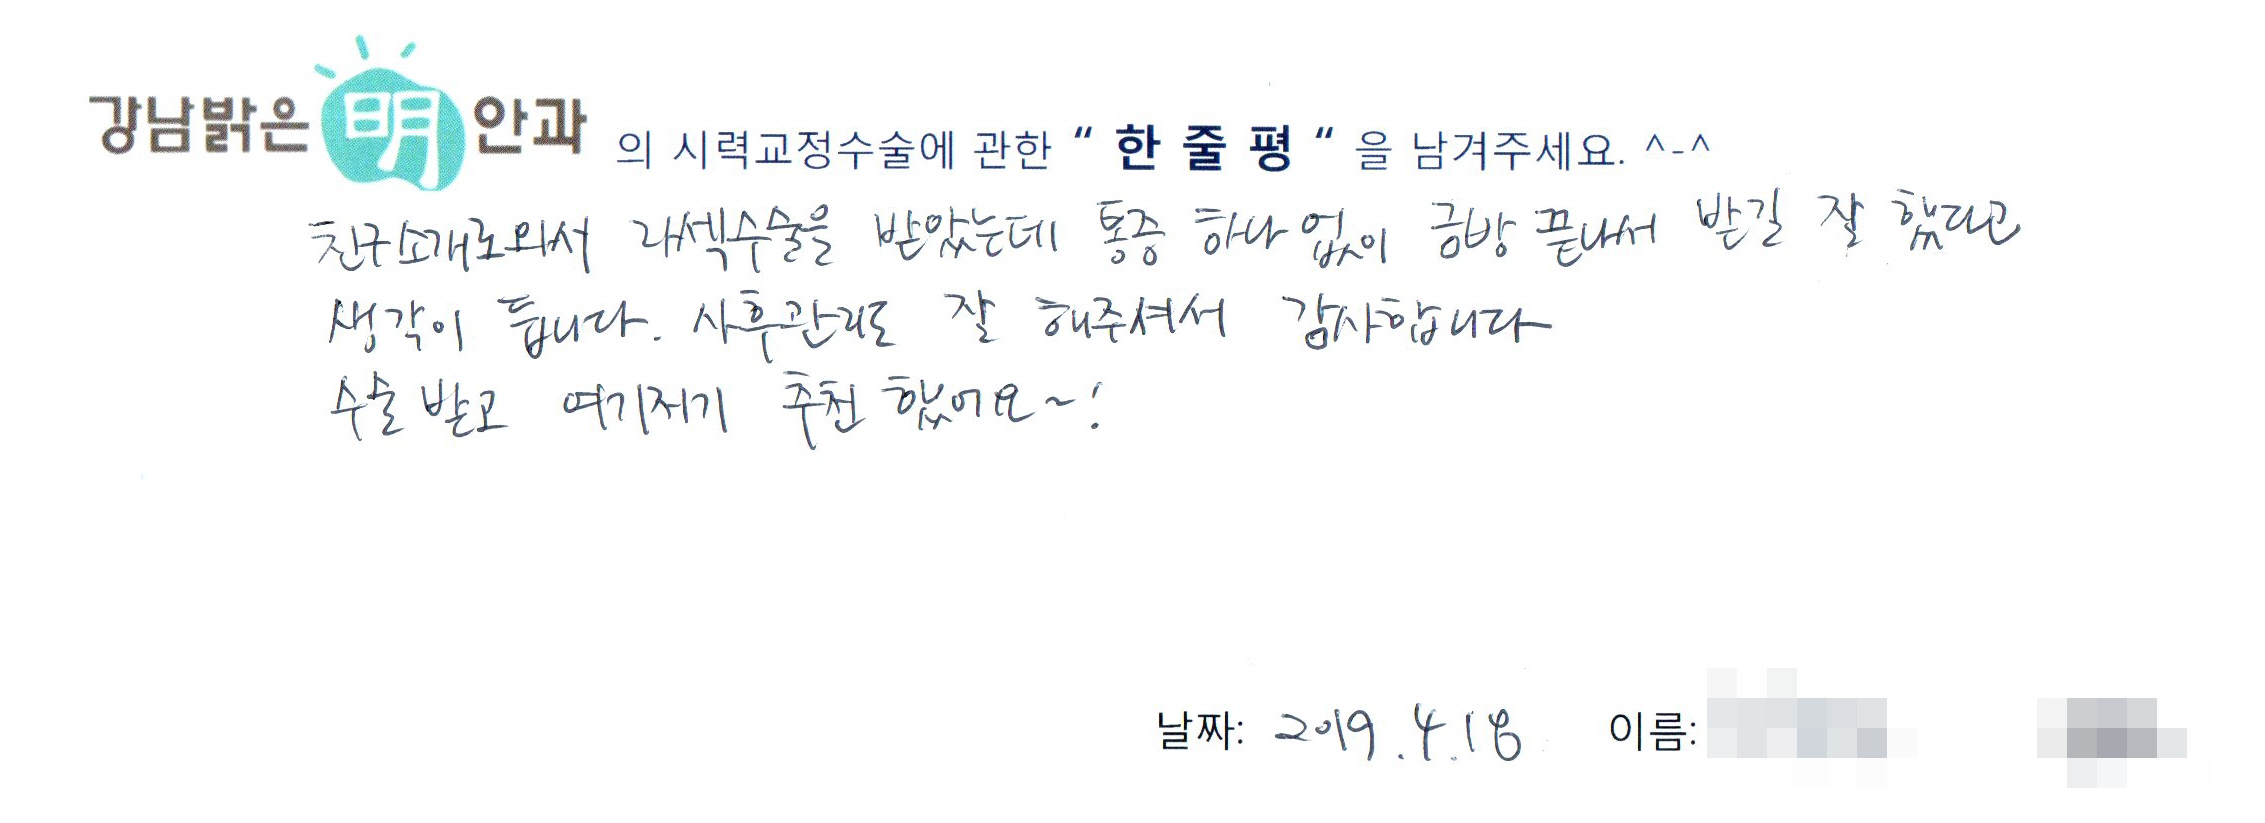 강남밝은 明 안과 의 시력교정수술에 관한 “ 한 줄 평 “ 을 남겨주세요. ^-^
친구소개로와서 라섹수술을 받았는데 통증 하나 없이 금방 끝나서 받길 잘 했다고
생각이 듭니다. 사후관리도 잘 해주셔서 감사합니다
수술 받고 여기저기 추천 했어요~!
날짜: 2019.4.18 이름: